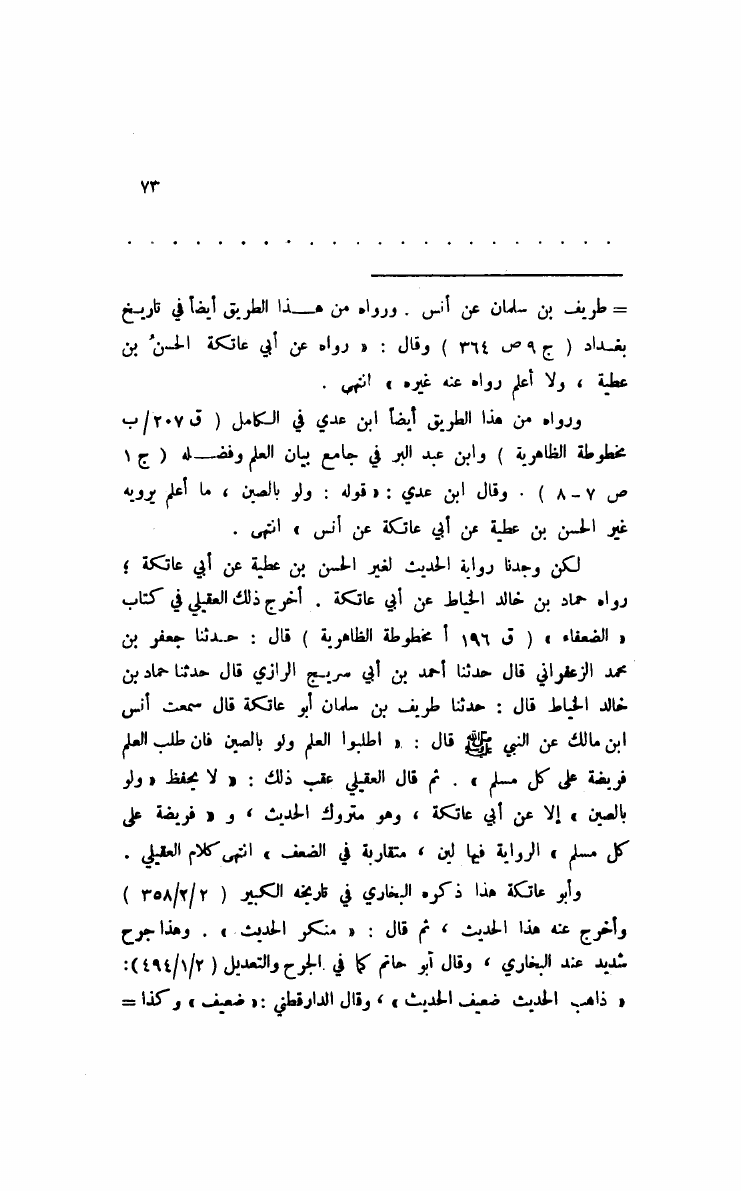 ٧٣
. . . . . . . . . . . . . . . . . . . . . .
= طريف بن سلمان عن أنس . ورواه من هـــذا الطريق أيضاً في تاريخ
بغداد ( ج ٩ ص ٣٦٤ ) وقال : « رواه عن أبي عاتكة الحسنُ بن
عطية ، ولا أعلم رواه عنه غيره » انتهى .
ورواه من هذا الطريق أيضاً ابن عدي في الكامل ( ق ٢٠٧/ب
مخطوطة الظاهرية ) وابن عبد البر في جامع بيان العلم وفضـــله ( ج ١
ص ٧ - ٨ ) . وقال ابن عدي : « قوله : ولو بالصين ، ما أعلم يرويه
غير الحسن بن عطية عن أبي عاتكة عن أنس » انتهى .
لكن وجدنا رواية الحديث لغير الحسن بن عطية عن أبي عاتكة ؛
رواه حماد بن خالد الخياط عن أبي عاتكة . أخرج ذلك العقيلي في كتاب
« الضعفاء » ( ق ١٩٦ أ مخطوطة الظاهرية ) قال : حدثنا جعفر بن
محمد الزعفراني قال حدثنا أحمد بن أبي سريج الرازي قال حدثنا حماد بن
خالد الخياط قال : حدثنا طريف بن سلمان أبو عاتكة قال سمعت أنس
ابن مالك عن النبي ﷺ قال : « اطلبوا العلم ولو بالصين فان طلب العلم
فريضة على كل مسلم » . ثم قال العقيلي عقب ذلك : « لا يحفظ « ولو
بالصين » إلا عن أبي عاتكة ، وهو متروك الحديث ، و « فريضة على
كل مسلم » الرواية فيها لين ، متقاربة في الضعف » انتهى كلام العقيلي .
وأبو عاتكة هذا ذكره البخاري في تاريخه الكبير ( ٣٥٨/٢/٢ )
وأخرج عنه هذا الحديث ، ثم قال : « منكر الحديث » . وهذا جرح
شديد عند البخاري ، وقال أبو حاتم كما في الجرح والتعديل ( ٤٩٤/١/٢ ) :
« ذاهب الحديث ضعيف الحديث » ، وقال الدارقطني : « ضعيف » وكذا =